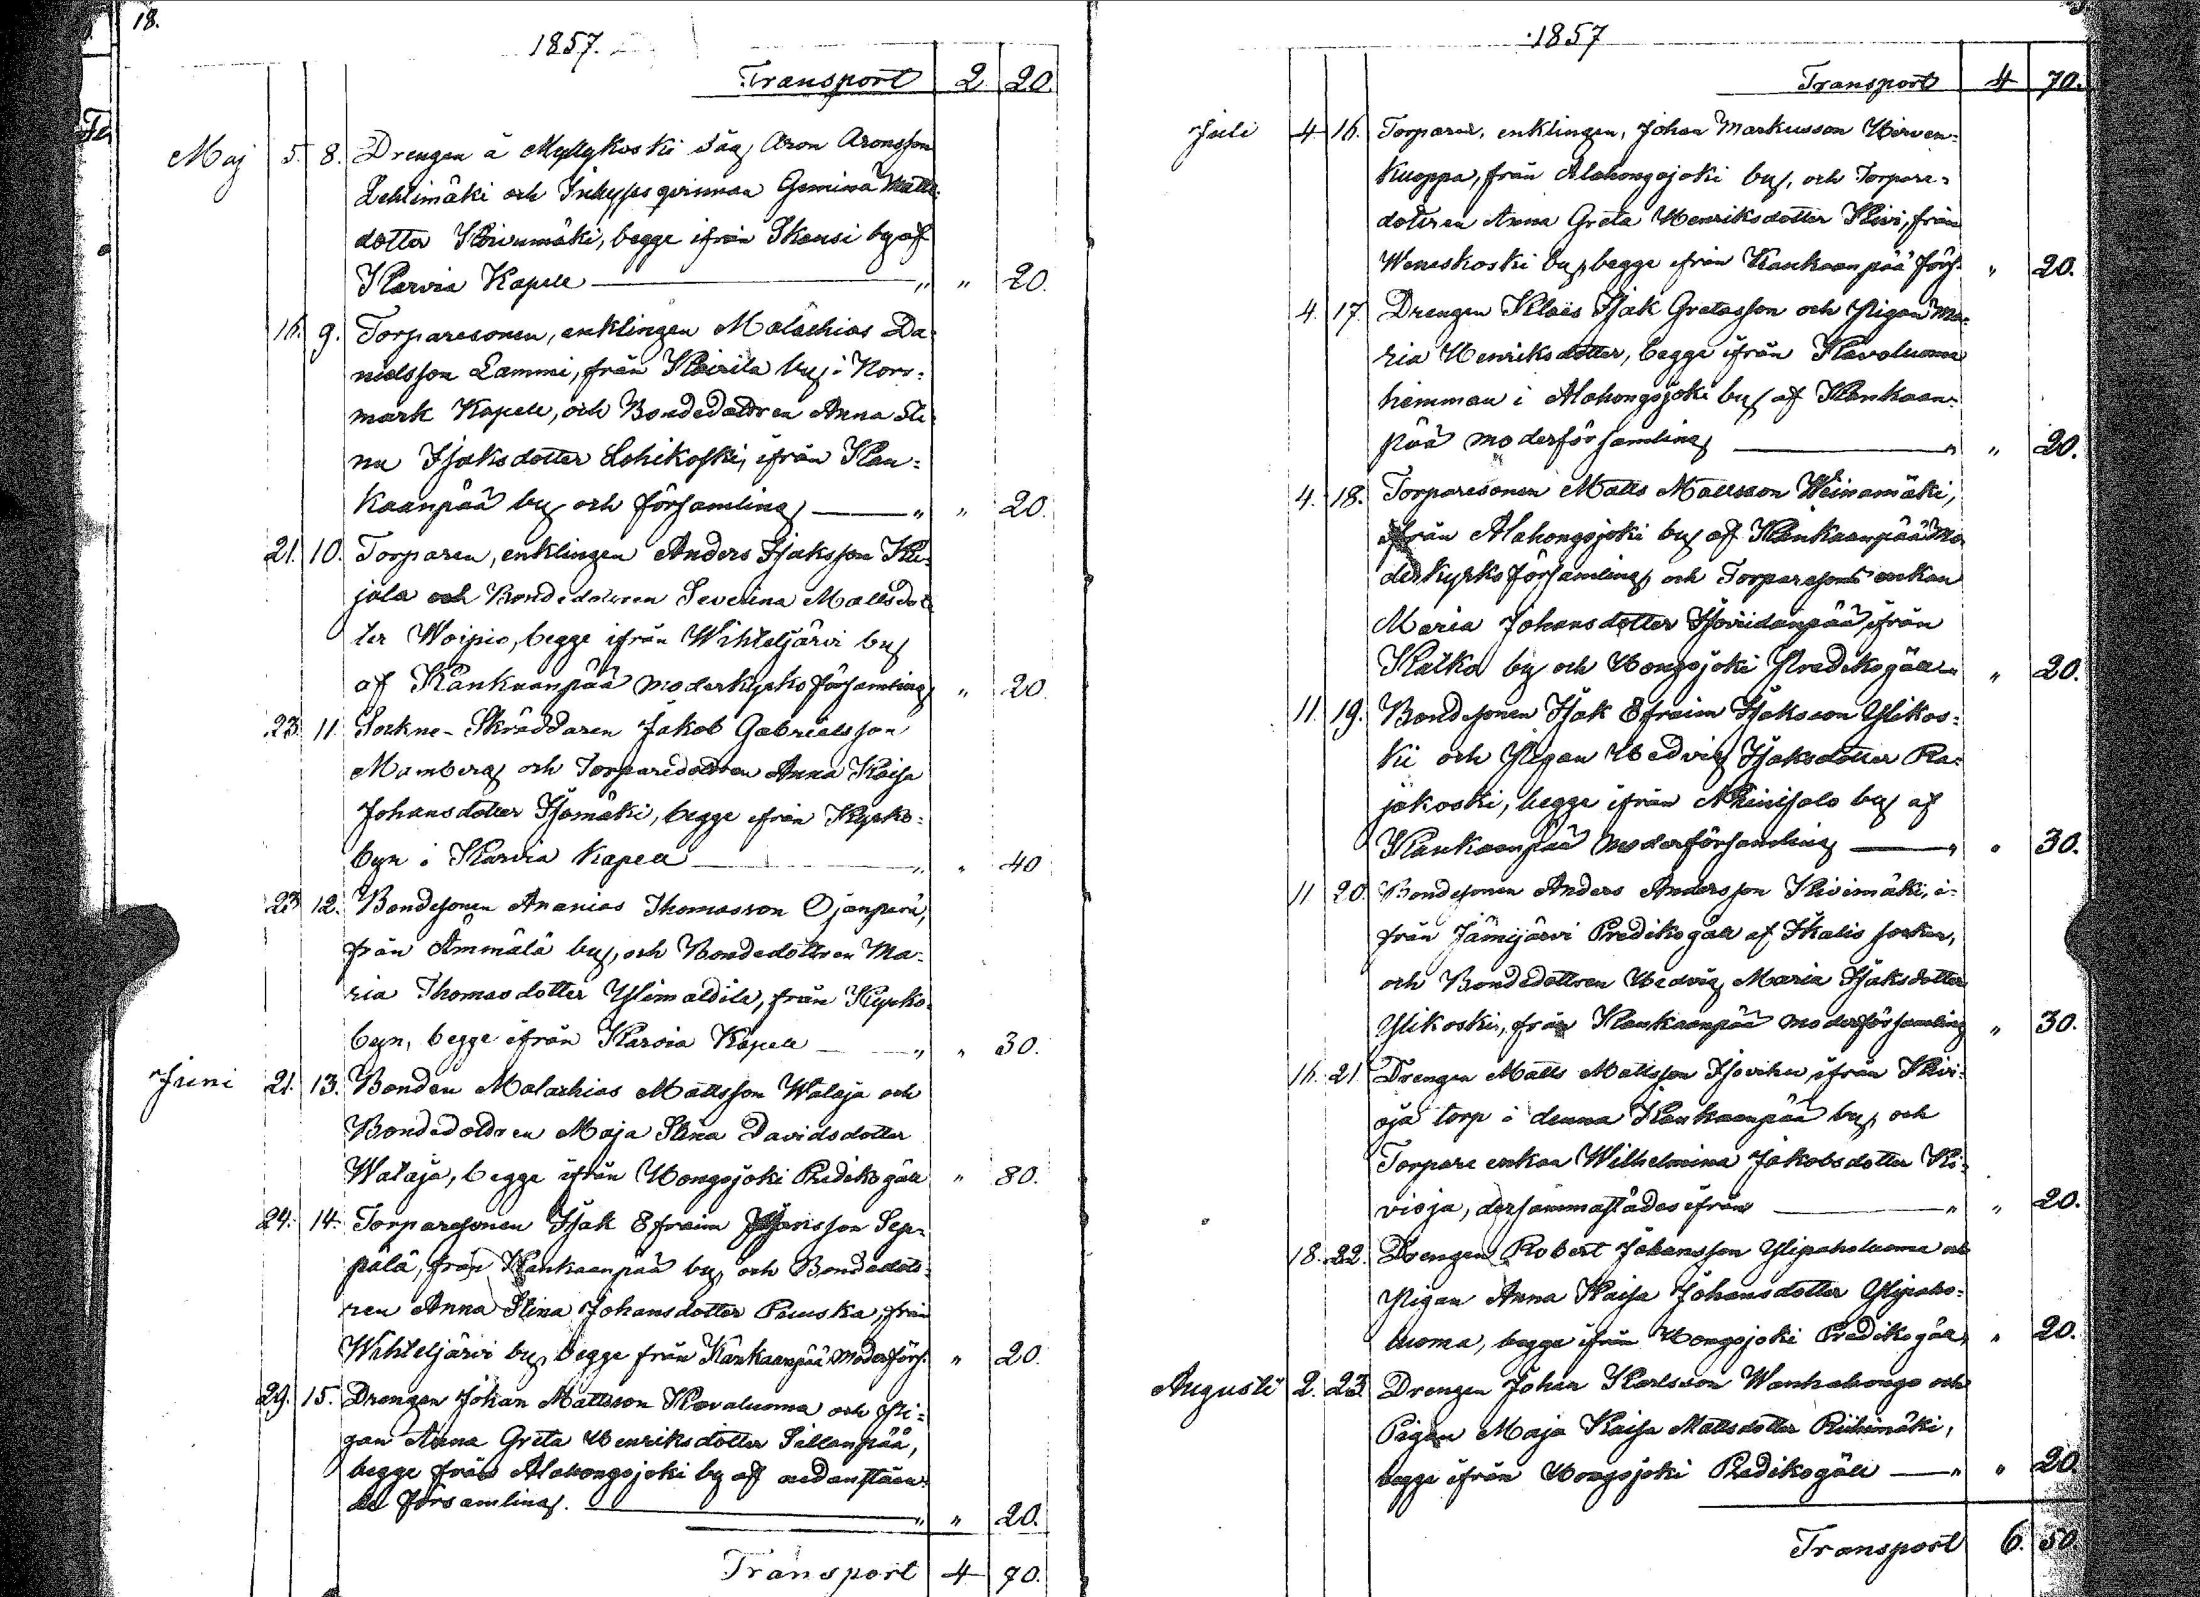 18.
1857.
Transport 2 20.
Maj 5. 8. Drengen å Myllykoski såg Aron Aronsson
Lehtimäki och Inhyses qvinnan Gemima Matts
dotter Kiviumäki, begge ifrån Skansi by af
Karvia Kapell — " " 20.
16. 9. Torparesonen, enklingen Malachias Da-
nielsson Lammi, från Kairila by i Norr-
mark Kapell, och Bondedottren Anna Sti
na Isaksdotter Lohikoski, ifrån Kan-
kaanpää by och församling — " " 20.
21. 10. Torparen, enklingen Anders Isaksson Ku-
jala och Bondedottren Severina Mattsdot
ter Woipio, begge ifrån Wihteljärvi by
af Kankaanpää moderkyrko församling " 20
23. 11. Sockne-Skräddaren Jakob Gabrielsson
Mamberg och Torparedottren Anna Kaisa
Johansdotter Isomäki, begge ifrån Kyrko-
byn i Karvia Kapell — " " 40
23 12. Bondesonen Ananias Thomasson Ojanperä,
från Ämmälä by, och Bondedottren Ma-
ria Thomasdotter Ylimaldila, från Kyrko-
byn, begge ifrån Karvia Kapell — " " 30.
Juni 21. 13. Bonden Malachias Mattsson Wataja och
Bondedottren Maja Stina Davidsdotter
Wataja, begge ifrån Hongojoki Predikogäll " 80.
24. 14. Torparesonen Isak Efraim Isaksson Sep-
pälä, från Kankaanpää by, och Bondedott-
ren Anna Stina Johansdotter Puuska, från
Wihteljärvi by, begge från Kankaanpää Moderförs. " 20.
29. 15. Drengen Johan Mattsson Kavaluoma och Pi-
gan Anna Greta Henriksdotter Sillanpää,
begge från Alahongojoki by af nedanståen-
de församling. — " " 20.
Transport 4 70.
1857
Transport 4 70.
Juli 4 16. Torparen, enklingen, Johan Markusson Hirven-
kuoppa, från Alahongojoki by, och Torpare-
dottren Anna Greta Henriksdotter Kivi, från
Weneskoski by, begge ifrån Kankaanpää förs. " 20.
4. 17. Drengen Klaës Isak Gretasson och Pigan Ma-
ria Henriksdotter, begge ifrån Kavaluoma
hemman i Alahongojoki by af Kankaan-
pää moderförsamling — " " 20.
4. 18. Torparesonen Matts Mattsson Weinamäki,
ifrån Alahongojoki by af Kankaanpää Mo
derkyrko församling och Torparesons enkan
Maria Johansdotter Isoviidanpää, ifrån
Katko by och Hongojoki Predikogäll " " 20.
11. 19. Bondesonen Isak Efraim Isaksson Ylikos-
ki och Pigan Hedvig Isaksdotter Ra-
jakoski, begge ifrån Niinisalo by af
Kankaanpää Moderförsamling — " " 30.
11 20. Bondesonen Anders Andersson Kivimäki, i-
från Jämijärvi Predikogäll af Ikalis socken,
och Bondedottren Hedvig Maria Isaksdotter
Ylikoski, från Kankaanpää moderförsamling " 30.
16. 21. Drengen Matts Mattsson Isoviku, ifrån Kivi-
oja torp i denna Kankaanpää by, och
Torpare enkan Wilhelmina Jakobsdotter Ki-
vioja, dersammastädes ifrån — " " 20.
18. 22. Drengen Robert Johansson Ylipaholuoma och
Pigan Anna Kaisa Johansdotter Ylipaho-
luoma, begge ifrån Hongojoki Predikogäll, " 20.
Augusti 2. 23. Drengen Johan Karlsson Wanhahongo och
Pigan Maja Kaisa Mattsdotter Riihimäki,
begge ifrån Hongojoki Predikogäll — " " 20.
Transport 6. 50.